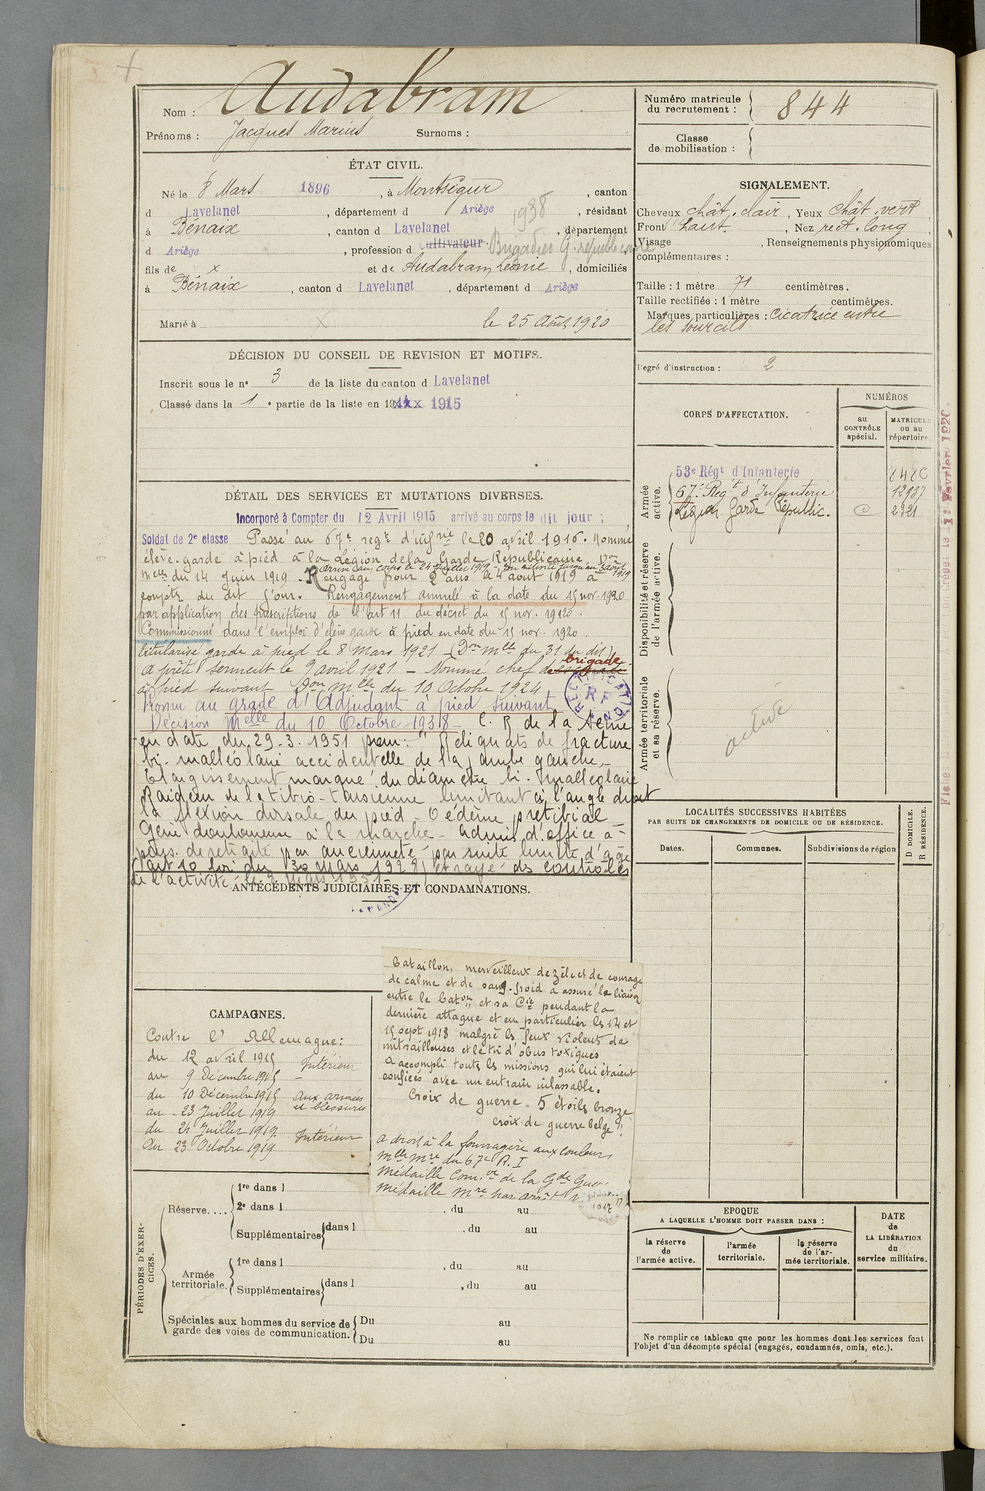 Nom : Audabram
Prénoms : Jacques Marius Surnoms :
ÉTAT CIVIL.
Né le 8 Mars 1896, à Montségur, canton
d Lavelanet, département d Ariège, résidant 1938
à Bénaix, canton d Lavelanet, département
d Ariège, profession d Cultivateur. Brigadier G. républicaine
fils de x et de Audabram, domiciliés
à Bénaix, canton d Lavelanet, département d Ariège
Marié à x le 25 Août 1920
DÉCISION DU CONSEIL DE REVISION ET MOTIFS.
Inscrit sous le n° 3 de la liste du canton d Lavelanet
Classé dans la 1e partie de la liste en 1915
DÉTAIL DES SERVICES ET MUTATIONS DIVERSES.
Incorporé à Compter du 12 Avril 1915 arrivé au corps le dit jour ;
Soldat de 2e classe Passé au 67e regt d'infrie le 20 avril 1916. Nommé
élève-garde à pied à la Légion de la Garde Républicaine.
melle du 14 Juin 1919. Arrivé au corps le 24 juillet 1919
Rengagé pour 2 ans le 4 aout 1919 à
compter du dit jour. Rengagement annulé à la date du 15 nov. 1920
par application des prescriptions de l'art 11. du décret du 15 nov. 1920.
Commissionné dans l'emploi d'élève garde à pied en date du 15 nov. 1920.
titularisé garde à pied le 8 mars 1921 (Don melle du 31 du dit)
a prêté serment le 9 avril 1921 - Nommé chef de brigade
à pied suivant Don melle du 10 Octobre 1924
Promu au grade d'Adjudant à pied suivant
Décision Melle du 10 Octobre 1938 - C. R de la Seine
en date du 29.3.1951 pour : "Reliquats de fracture
bi. malléolaire accidentelle de la jambe gauche -
Elargissement marqué du diamètre bi. malléolaire
Raideur de la tibio-tarsienne limitant à l'angle droit
la flexion dorsale du pied - Oedème prétibial -
Gêne douloureuse à la marche - admis d'office à
pens. de retraite par ancienneté par suite limite d'âge
(art 10 loi du 30 mars 1928) rayé des contrôles
de l'activité le 8 mars 1951
RECTIFICATION
RF
ANTÉCÉDENTS JUDICIAIRES ET CONDAMNATIONS.
CAMPAGNES.
Contre l'Allemagne :
du 12 avril 1915
au 9 Décembre 1915 Intérieur
du 10 Décembre 1915 aux armées
au 23 Juillet 1919 et blessures
du 24 Juillet 1919
au 23 Octobre 1919 Intérieur
bataillon, merveilleux de zèle et de courage
de calme et de sang-froid a assuré la liaison
entre le baton et sa Cie pendant la
dernière attaque et en particulier les 14 et
15 sept 1918 malgré les feux violents de
mitrailleuses et le tir d'obus toxiques
a accompli toutes les missions qui lui étaient
confiées avec un entrain inlassable.
Croix de guerre - 5 étoiles bronze
croix de guerre belge
a droit à la fourragère aux couleurs
mlle mre du 67e R.I
médaille Comve de la Gde Guerre
PÉRIODES D'EXERCICES.
Réserve....
1re dans l
2e dans l , du au
Supplémentaires dans l , du au
Armée territoriale.
1re dans l , du au
Supplémentaires dans l , du au
Spéciales aux hommes du service de garde des voies de communication.
Du au
Du au
Numéro matricule du recrutement : 844
Classe de mobilisation :
SIGNALEMENT.
Cheveux chât. clair, Yeux chât. vert,
Front haut, Nez rect. long
Visage , Renseignements physionomiques
complémentaires :
Taille : 1 mètre 71 centimètres.
Taille rectifiée : 1 mètre centimètres.
Marques particulières : cicatrice entre
les sourcils
Degré d'instruction : 2
CORPS D'AFFECTATION.
NUMÉROS
au CONTRÔLE spécial.
MATRICULE ou au répertoire.
Armée active.
53e Régt d'Infanterie
67e Regt d'Infanterie
Légion Garde Républic. C 2321
Disponibilité et réserve de l'armée active.
Armée territoriale et sa réserve.
activé
LOCALITÉS SUCCESSIVES HABITÉES
PAR SUITE DE CHANGEMENTS DE DOMICILE OU DE RÉSIDENCE.
Dates.
Communes.
Subdivisions de région
D DOMICILE.
R RÉSIDENCE.
EPOQUE
A LAQUELLE L'HOMME DOIT PASSER DANS :
la réserve de l'armée active.
l'armée territoriale.
la réserve de l'armée territoriale.
DATE
de
LA LIBÉRATION
du
service militaire.
Ne remplir ce tableau que pour les hommes dont les services font
l'objet d'un décompte spécial (engagés, condamnés, omis, etc.).